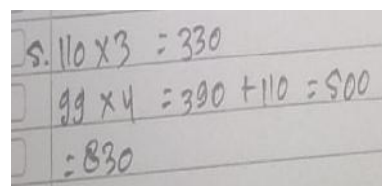 5. 110 x 3 = 330
99 x 4 = 390 + 110 = 500
= 830